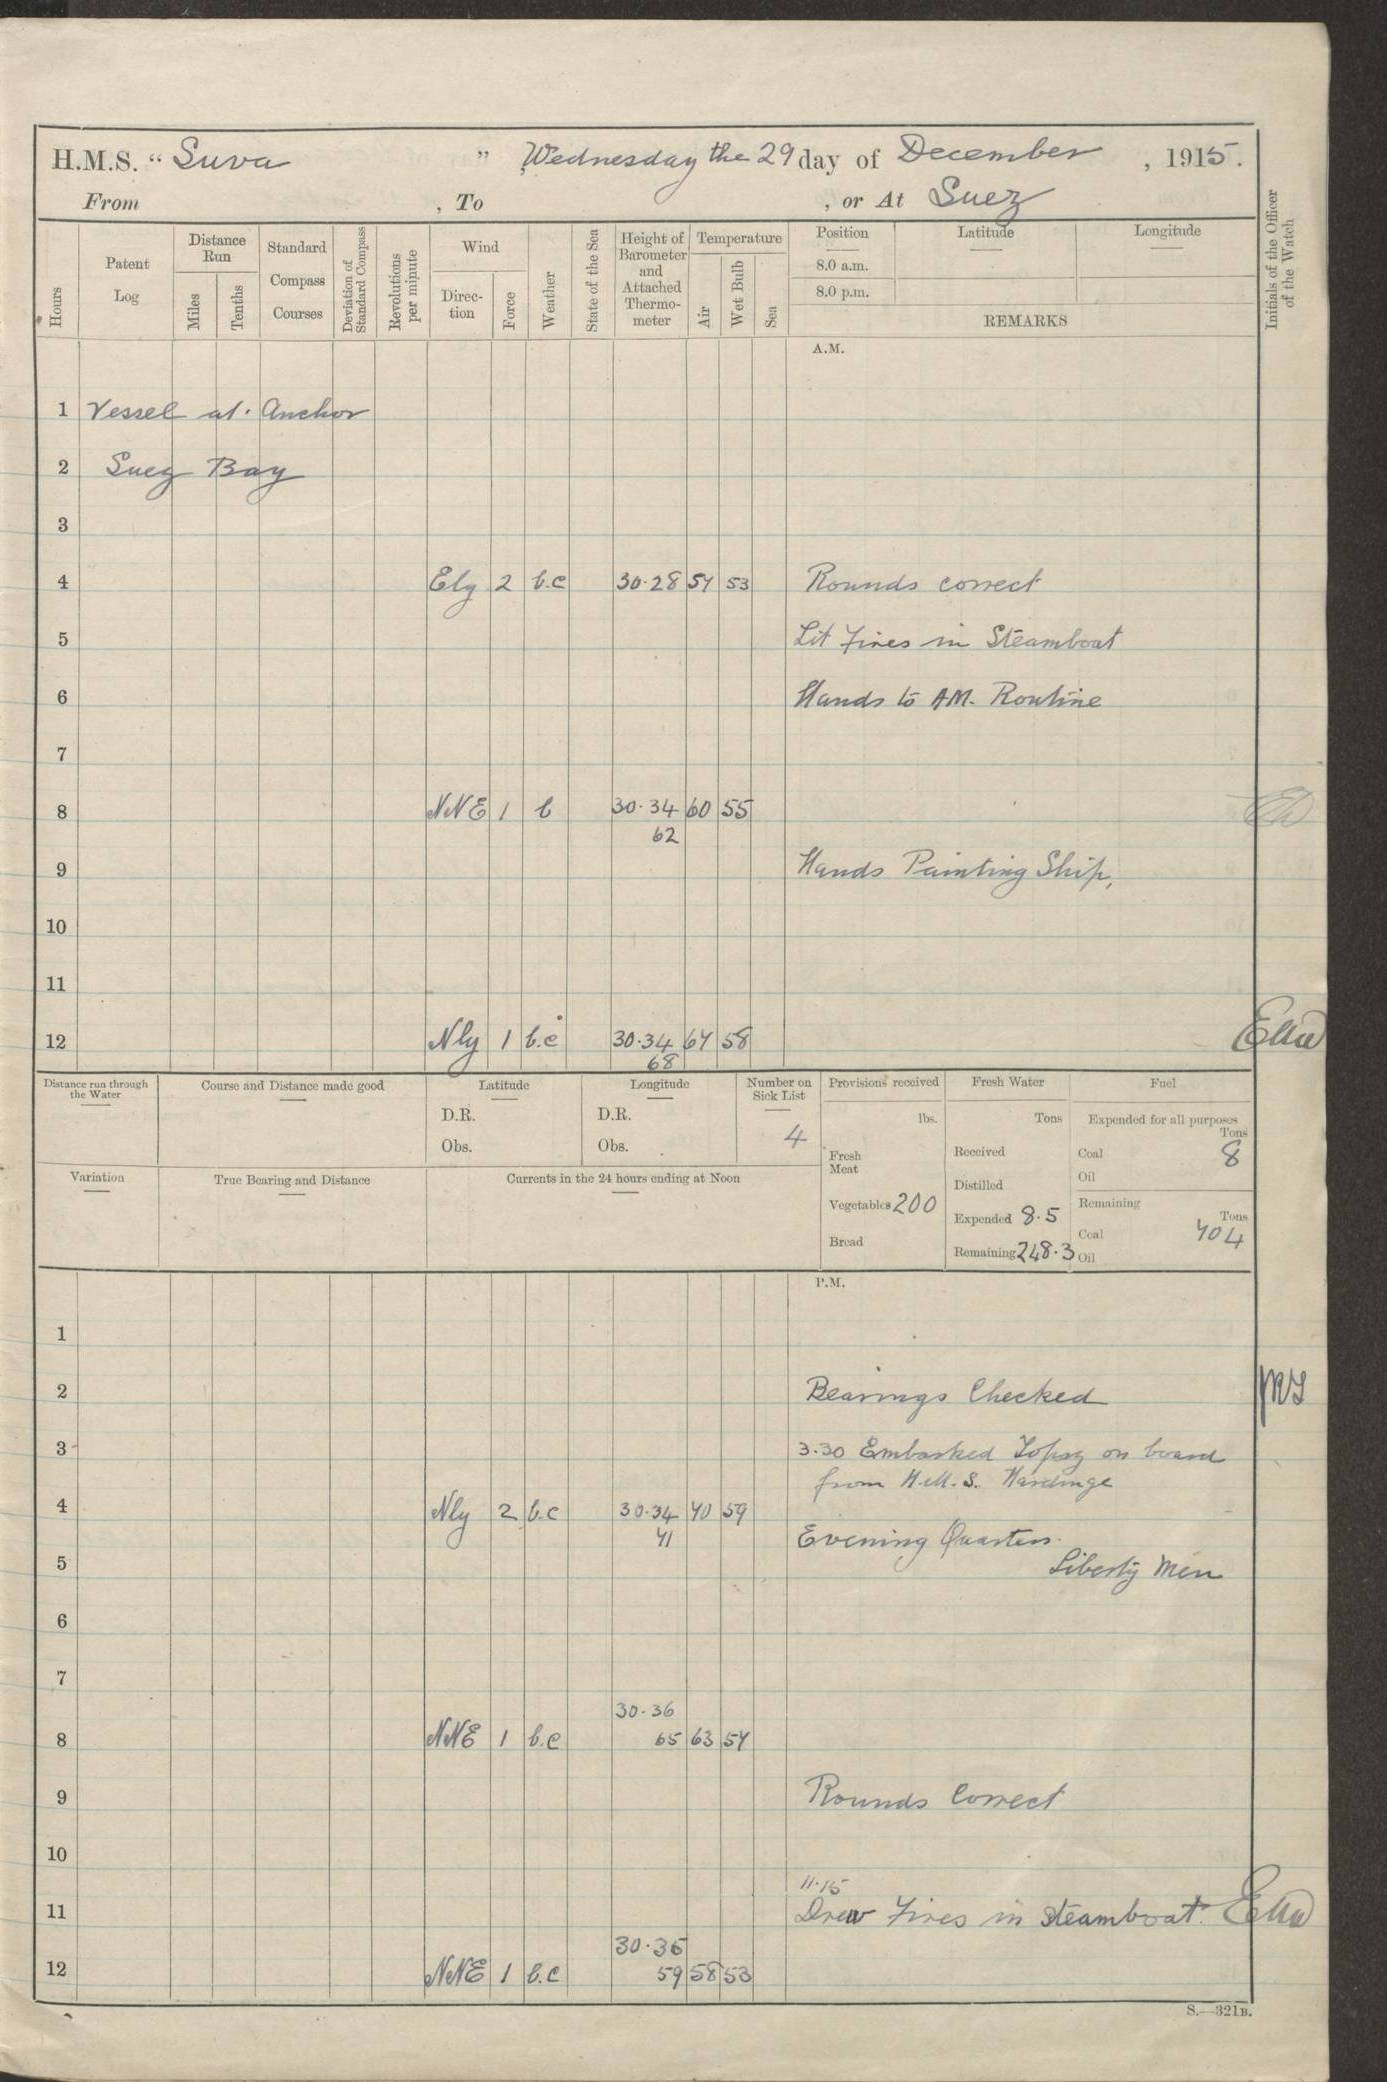 H.M.S. "Suva" Wednesday the 29 day of December, 1915.
From , To , or At Suez
Hours
Patent Log
Distance Run
Miles
Tenths
Standard Compass Courses
Deviation of Standard Compass
Revolutions per minute
Wind
Direction
Force
Weather
State of the Sea
Height of Barometer and Attached Thermometer
Temperature
Air
Wet Bulb
Sea
Position
8.0 a.m.
8.0 p.m.
Latitude
Longitude
REMARKS
Initials of the Officer of the Watch
A.M.
1 Vessel at Anchor
2 Suez Bay
3
4 Ely 2 b.c 30.28 57 53 Rounds correct
5 Lit Fires in Steamboat
6 Hands to AM. Routine
7
8 NNE 1 b 30.34 60 55
62
9 Hands Painting Ship,
10
11
12 Nly 1 b.c 30.34 67 58
68
Distance run through the Water
Course and Distance made good
Latitude
D.R.
Obs.
Longitude
D.R.
Obs.
Number on Sick List
4
Provisions received
lbs.
Fresh Meat
Vegetables 200
Bread
Fresh Water
Tons
Received
Distilled
Expended 8.5
Remaining 248.3
Fuel
Expended for all purposes
Tons
Coal 8
Oil
Remaining
Tons
Coal 704
Oil
Variation
True Bearing and Distance
Currents in the 24 hours ending at Noon
P.M.
1
2 Bearings Checked
3 3.30 Embarked Topsy on board
from H.M.S. Hardinge
4 Nly 2 b.c 30.34 70 59
71
Evening Quarters.
5 Liberty Men
6
7
30.36
8 NNE 1 b.c 65 63 57
9 Rounds Correct
10
11.15
11 Drew Fires in Steamboat.
30.36
12 NNE 1 b.c 59 58 53
S.—321B.